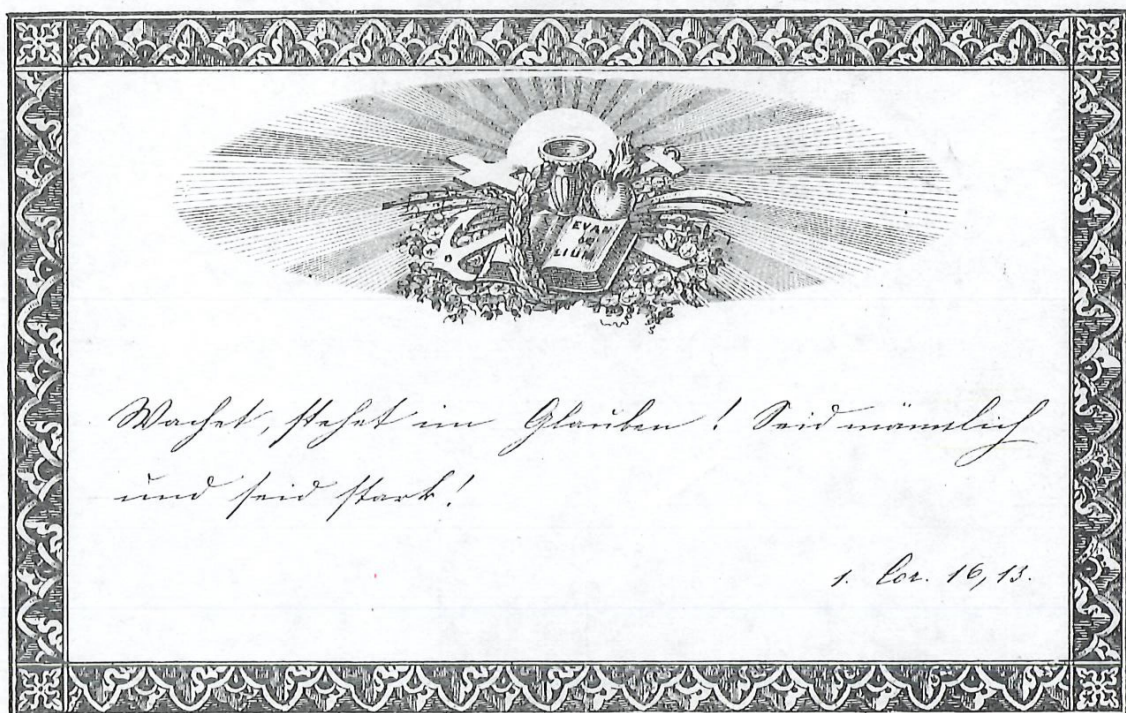 EVAN
GE
LIUM
Wachet, stehet im Glauben! Seid männlich
und seid stark!
1. Cor. 16, 13.